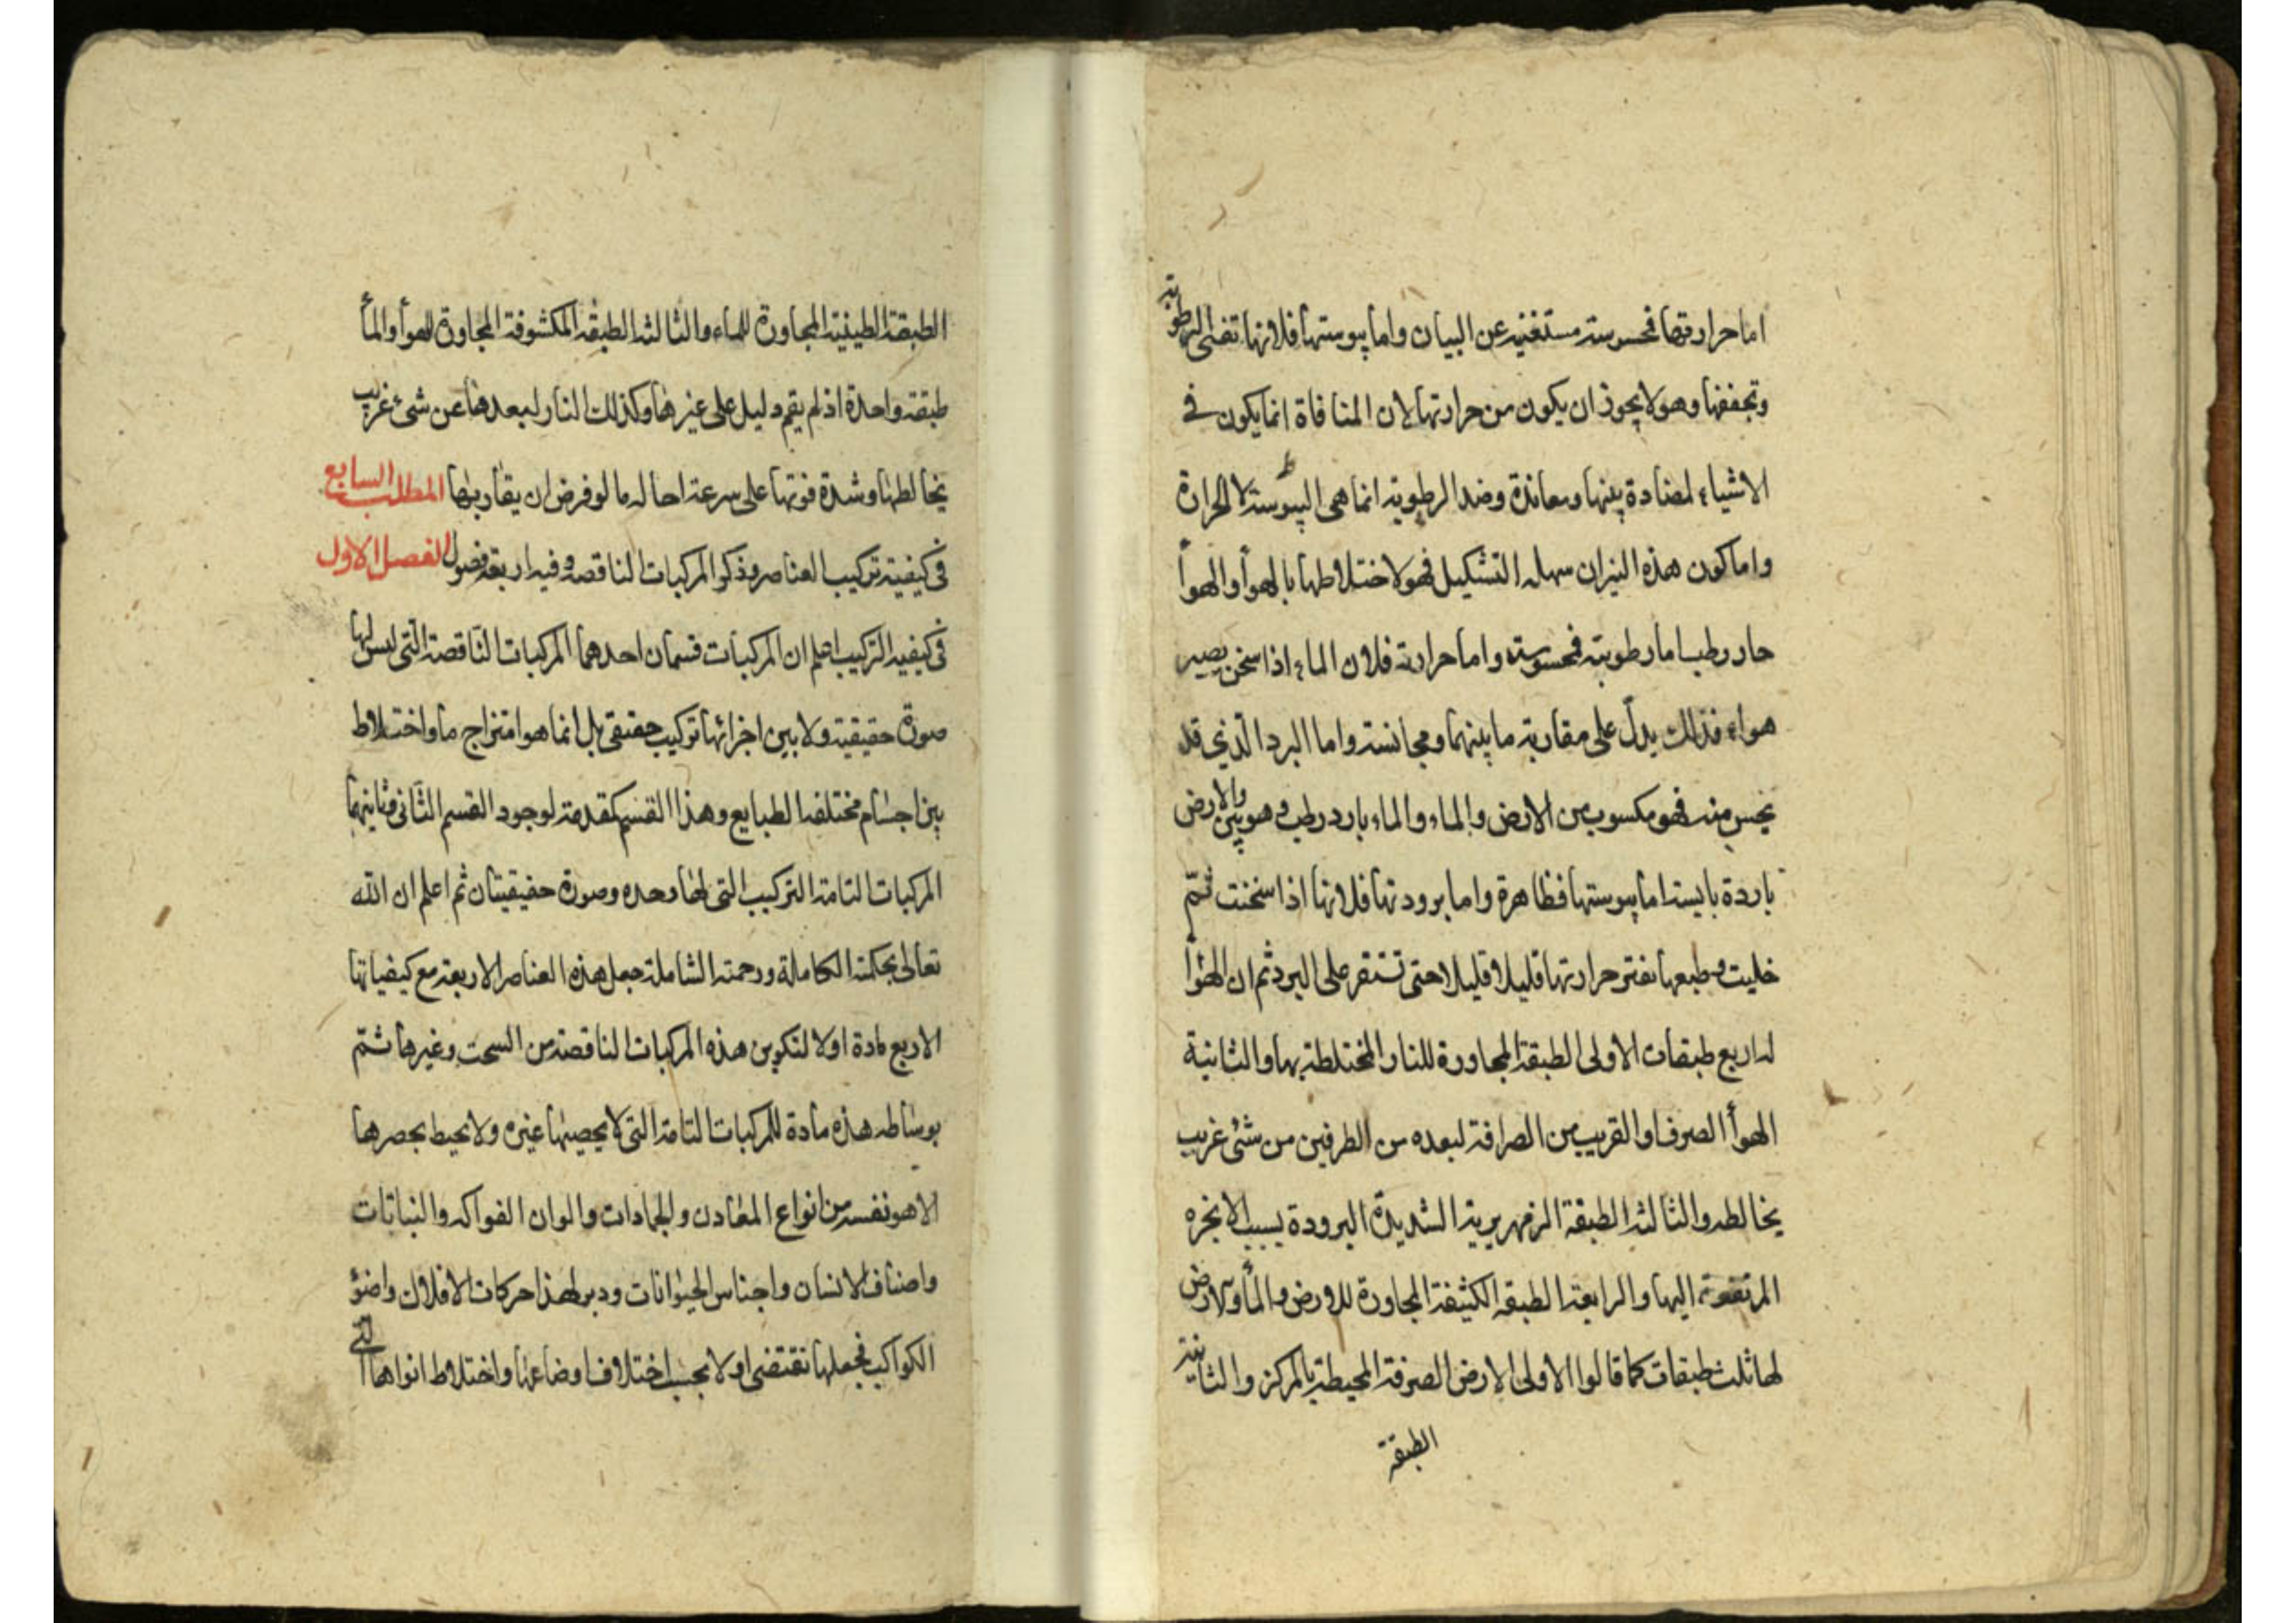 اما حرارتها فمحسوسة مستغنية عن البيان واما يبوستها فلانها تفنى الرطوبة
وتجففها وهو لا يجوز ان يكون من حرارتها لان المنافاة انما يكون في
الاشياء لمضادة بينها ومعاندة وضد الرطوبة انما هى اليبوسة لا الحرارة
واما كون هذه النيران سهلة التشكيل فهو لاختلاطها بالهوأ والهوأ
حار رطب اما رطوبته فمحسوسته واما حرارته فلان الماء اذا سخن يصير
هواء فذلك يدلّ على مقاربة ما بينهما ومجانسة واما البرد الّذى قد
يحس منه فهو مكسوب من الارض والماء والماء بارد رطب وهو بيّن والارض
باردة يابسة اما يبوستها فظاهرة واما برودتها فلانها اذا سخنت ثمّ
خليت وطبعها تفتر حرارتها قليلا قليلا حتى تستقر على البرد ثم ان الهوأ
له اربع طبقات الاولى الطبقة المجاورة للنار المختلطة بها والثانية
الهوأ الصرف او القريب من الصرافة لبعده من الطرفين من شئ غريب
يخالطه والثالثة الطبقة الزمهريرية الشديدة البرودة بسبب الابخره
المرتفعة اليها والرابعة الطبقة الكثيفة المجاورة للارض والمأ والارض
لها ثلث طبقات كما قالوا الاولى الارض الصرفة المحيطة بالمركز والثانية
الطبقة
الطبقة الطينية المجاورة للماء والثالثة الطبقة المكشوفة المجاورة للهوأ والمأ
طبقة واحدة اذ لم يقم دليل على غيرها وكذلك النار لبعدها عن شئ غريب
يخالطها وشدة قوتها على سرعة احالة ما لو فرض ان يقاربها المطلب السابع
فى كيفية تركيب العناصر وذكر المركبات الناقصة وفيه اربعة فصول الفصل الاول
فى كيفية التركيب اعلم ان المركبات قسمان احدهما المركبات الناقصة التى ليس لها
صورة حقيقية ولا بين اجزائها تركيب حقيقى بل انما هو امتزاج ما واختلاط
بين اجسام مختلفة الطبايع وهذا القسم كمقدمة لوجود القسم الثانى وثانيهما
المركبات التامة التركيب التى لها وحده وصورة حقيقيتان ثم اعلم ان الله
تعالى بحكمته الكاملة ورحمته الشاملة جعل هذه العناصر الاربعة مع كيفياتها
الاربع مادة اولا لتكوين هذه المركبات الناقصة من السحب وغيرها ثمّ
بوساطة هذه مادة للمركبات التامة التى لا يحصيها غيره ولا يحيط بحصرها
الا هو نفسه من انواع المعادن والجمادات والوان الفواكه والنباتات
واصناف الانسان واجناس الحيوانات ودبر لهذا حركات الافلاك واضوؤ
الكواكب فجعلها تقتضى اولا بحسب اختلاف اوضاعها واختلاط انواها التى